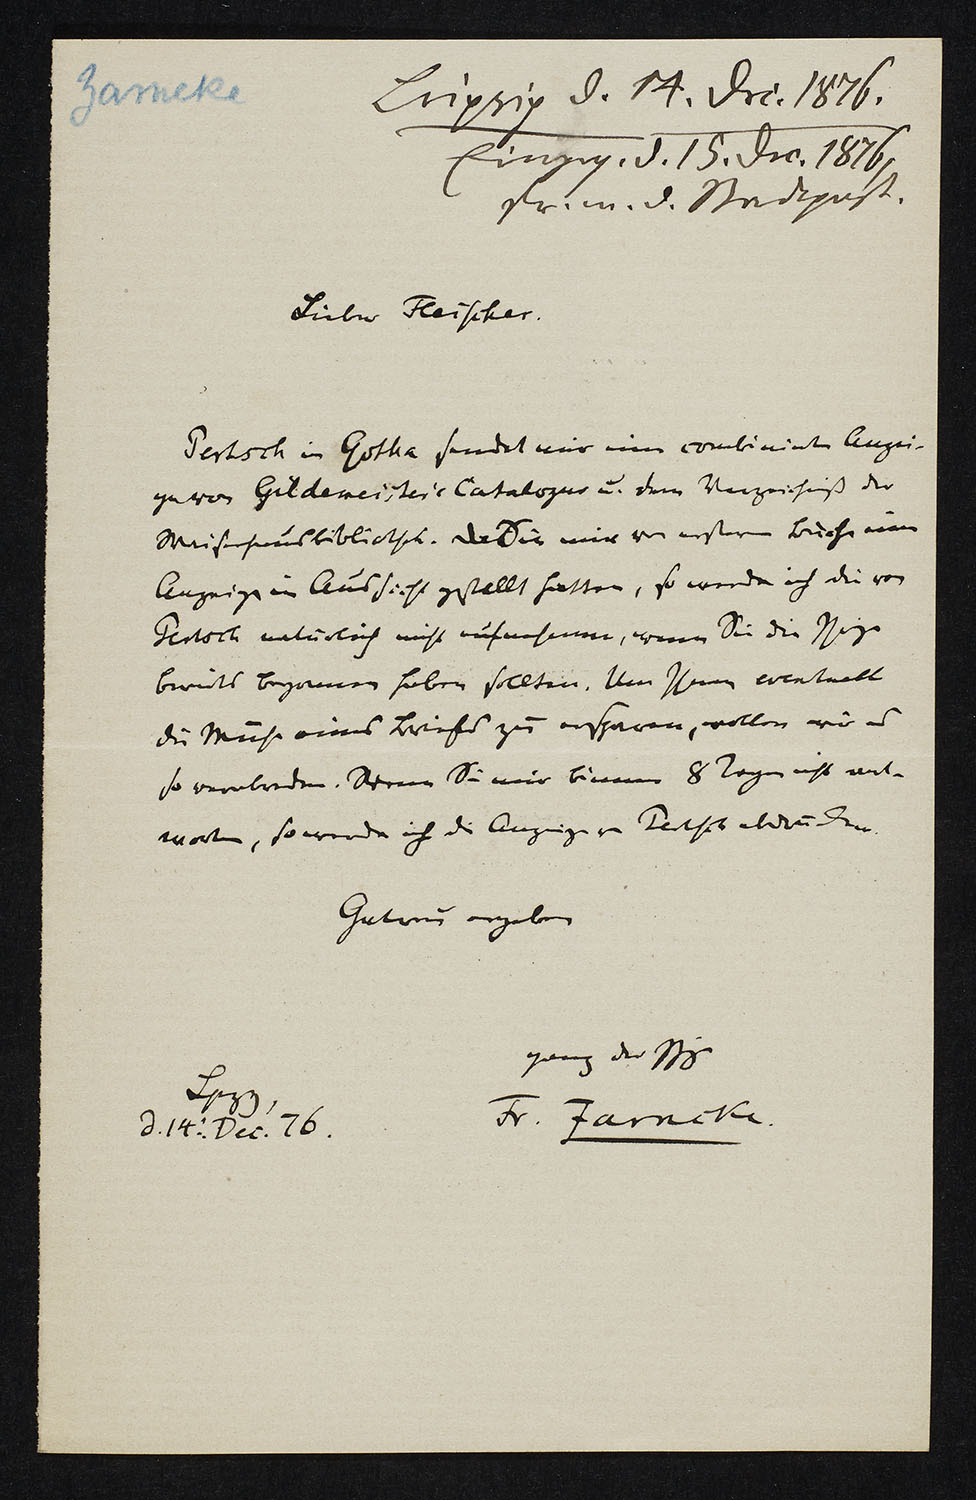 Zarncke
Leipzig d. 14. Dec. 1876.
Eingeg. d. 15. Dec. 1876,
fr. m. d. Stadtpost.
Lieber Fleischer.
Pertsch in Gotha sendet mir eine combinirte Anzei-
ge von Gildemeisters Catalogus u. dem Verzeichniß der
Waisenhausbibliothek. Da Sie mir von ersterem Buche eine
Anzeige in Aussicht gestellt hatten, so werde ich die von
Pertsch natürlich nicht aufnehmen, wenn Sie die Ihrige
bereits begonnen haben sollten. Um Ihnen eventuell
die Mühe eines Briefes zu ersparen, wollen wir es
so verabreden. Wenn Sie mir binnen 8 Tagen nicht ant-
worten, so werde ich die Anzeige von Pertsch abdrucken.
Getreu ergeben
ganz der Ihrige
Lpzg,
d. 14. Dec. 76.
Fr. Zarncke.